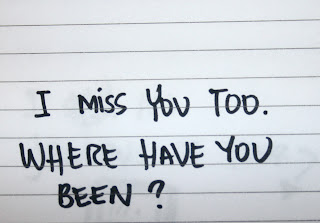 I MISS YOU TOO.
WHERE HAVE YOU
BEEN?